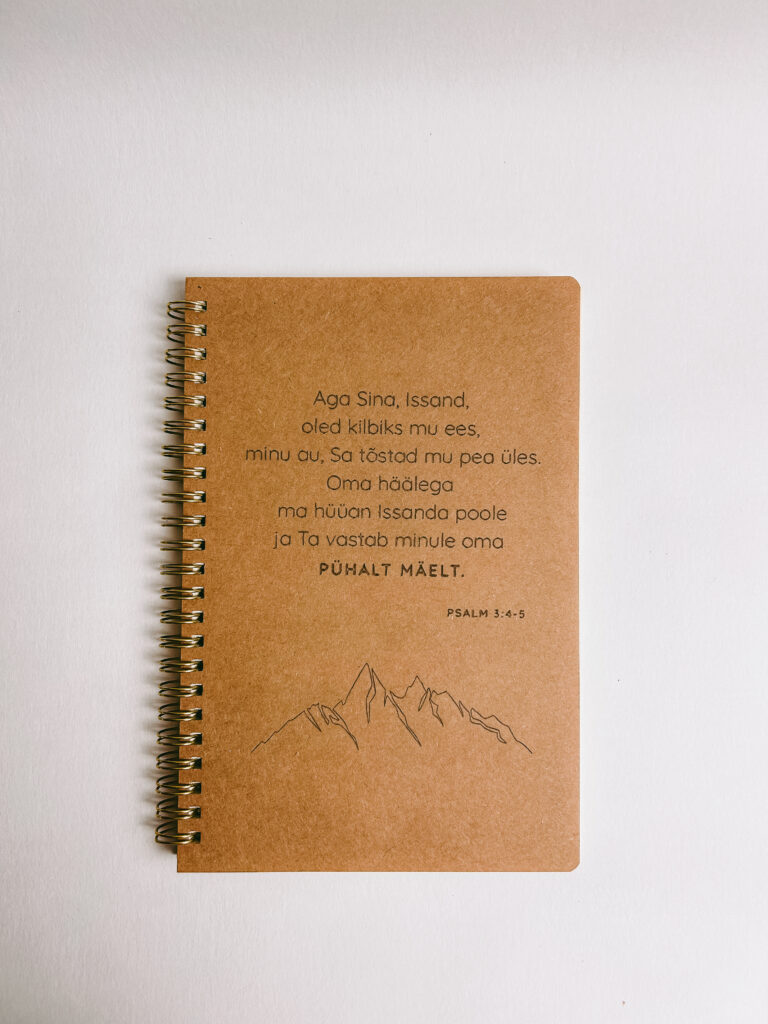 Aga Sina, Issand,
oled kilbiks mu ees,
minu au, Sa tõstad mu pea üles.
Oma häälega
ma hüüan Issanda poole
ja Ta vastab minule oma
PÜHALT MÄELT.
PSALM 3:4-5